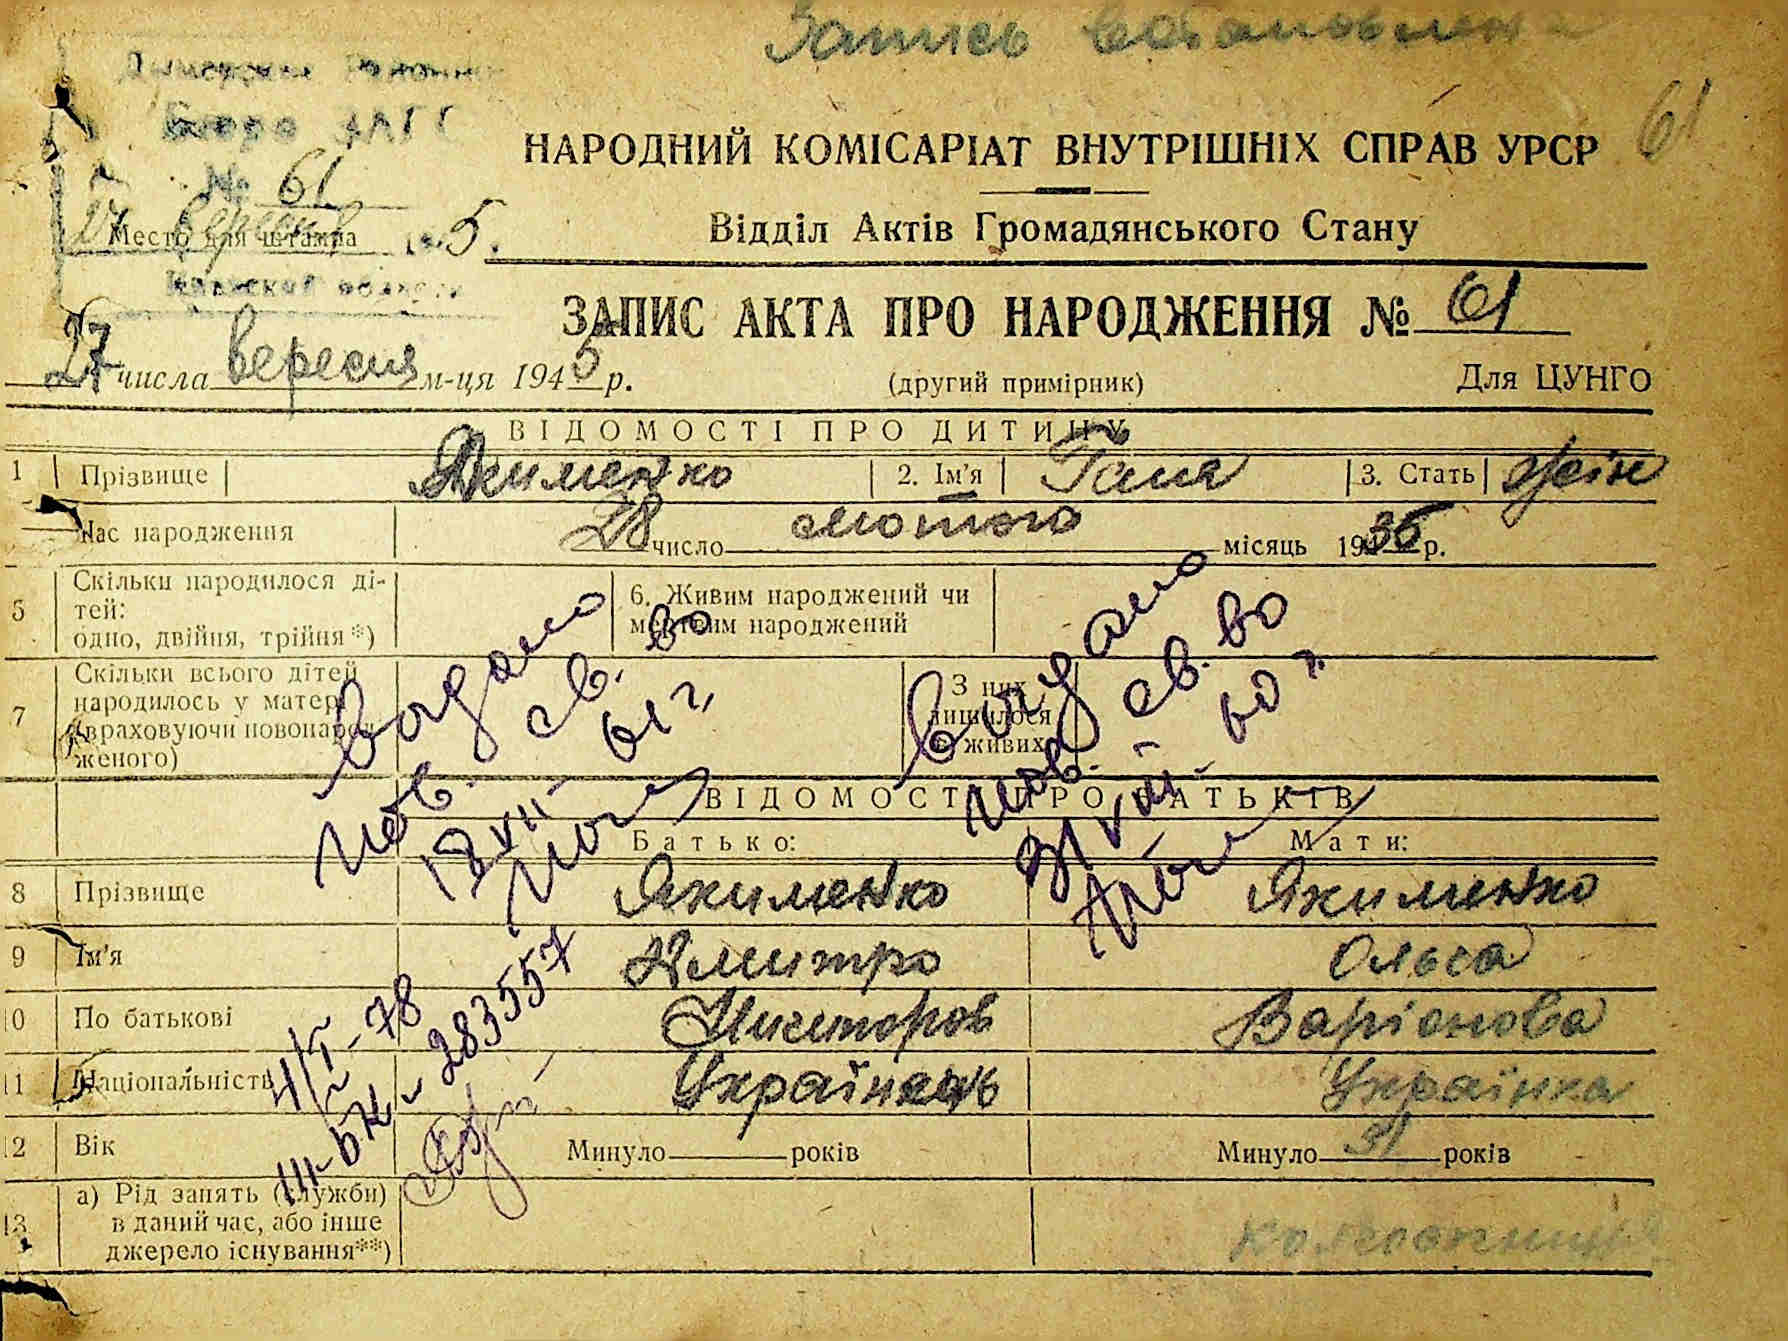 Запись встановлена
Бюро ЗАГС
61
№ 61
НАРОДНИЙ КОМІСАРІАТ ВНУТРІШНІХ СПРАВ УРСР
27 вересня 5.
Место для штампа
Відділ Актів Громадянського Стану
ЗАПИС АКТА ПРО НАРОДЖЕННЯ № 61
27 числа вересня м-ця 1945 р.
(другий примірник)
Для ЦУНГО
ВІДОМОСТІ ПРО ДИТИНУ
1 Прізвище Якименко 2. Ім'я Ганя 3. Стать жін
Час народження 28 число лютого місяць 1936 р.
5 Скільки народилося ді-
тей:
одно, двійня, трійня*)
6. Живим народжений чи
мертвим народжений
7 Скільки всього дітей
народилось у матері
(враховуючи новонарод-
женого)
З них
лишилося
в живих
видано
пов. св. во
18 XII - 61 г.
видано
пов. св. во
31 VIII - 60 г.
ВІДОМОСТІ ПРО БАТЬКІВ
Батько: Мати:
8 Прізвище Якименко Якименко
9 Ім'я Дмитро Ольга
10 По батькові Никифоров Варіонова
11 Національність Українець Українка
12 Вік Минуло років Минуло 31 років
13 а) Рід занять (служби)
в даний час, або інше
джерело існування**)
колгоспниця
4/I - 78
III-БК - 283557